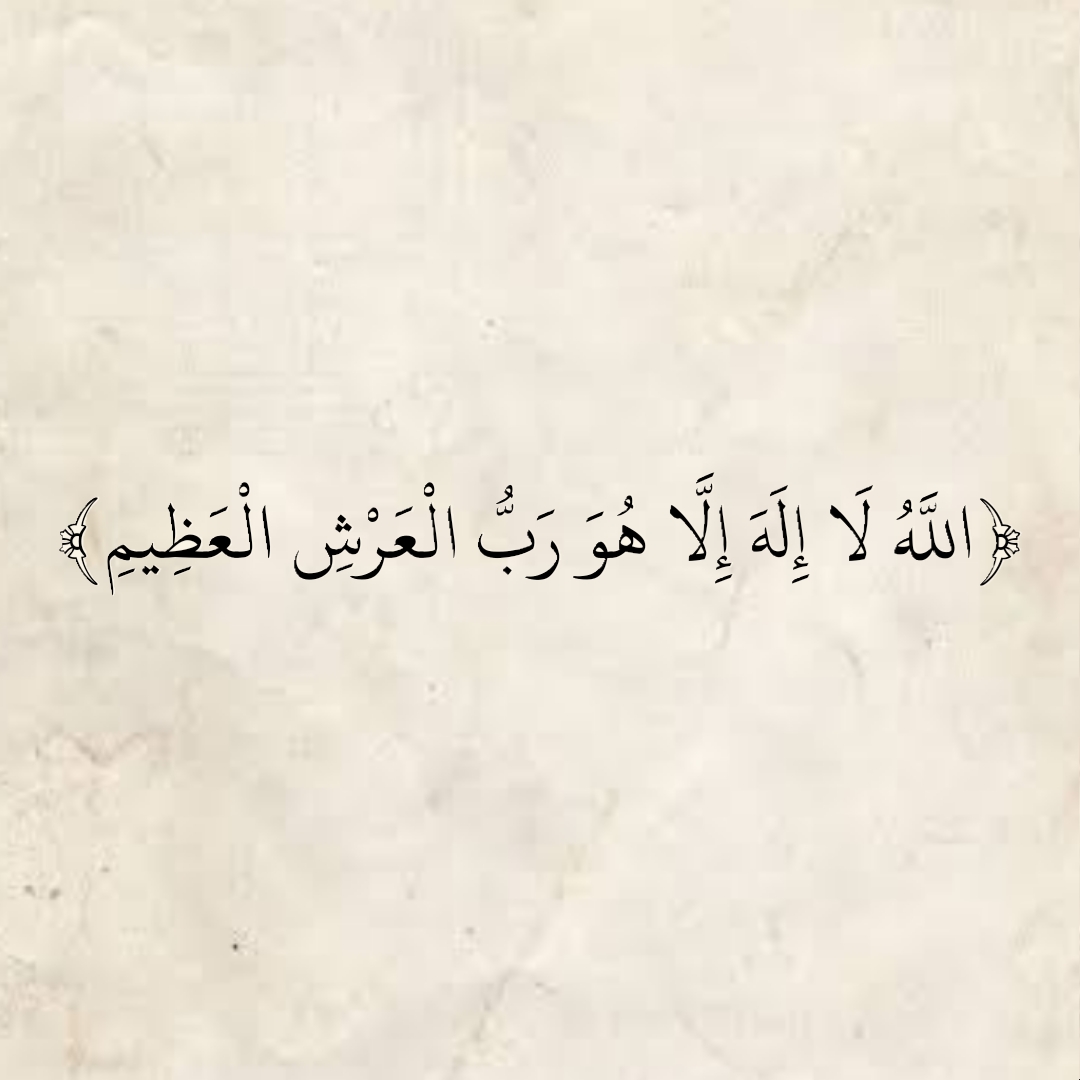 ﴿اللَّهُ لَا إِلَهَ إِلَّا هُوَ رَبُّ الْعَرْشِ الْعَظِيمِ﴾